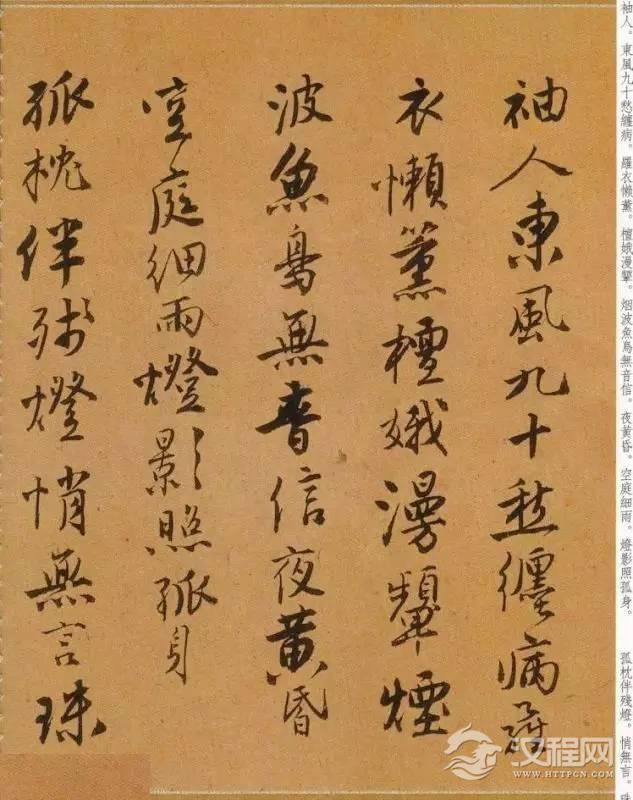 袖人。東風九十愁纏病。羅衣懶薰。檀娥漫顰。烟波魚鳥無音信。夜黄昏。空庭細雨。燈影照孤身。
孤枕伴殘燈。悄無言。珠
袖人東風九十愁纏病羅
衣懶薰檀娥漫顰煙
波魚鳥無音信夜黄昏
空庭細雨燈影照孤身
孤枕伴殘燈悄無言珠
汉程网
WWW.HTTPCN.COM